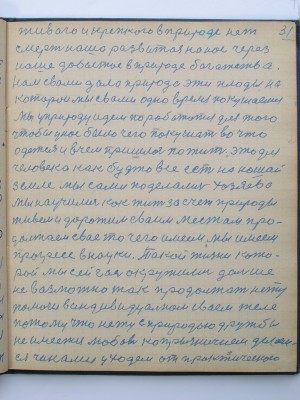 31
живого и крепкого в природе нет
смерт нашо развитая на кое через
наше добытое в природе богатства.
нам с вами дала природа эти плоды на
которои мы с вами одно время покушаеми
мы у природу идем поработат для того
чтобы у кое бы чего покушат во что
одется и в чем пришлос пожит. это для
человека как будто все ест на нашой
земле мы сами поделалис хозяева
мы научилис как жит за счет природы
живем и дорожим своим местам про-
должаем свое то чего имеем, мы имеем
прогрес в науки. Такой жизни кото-
рой мы сейчас окружили дальше
не возможно так продолжат нету
помоги в индивидуалном своем теле
потому что нету с природою дружбы
не имеется любов
ся чинами уходем от практического